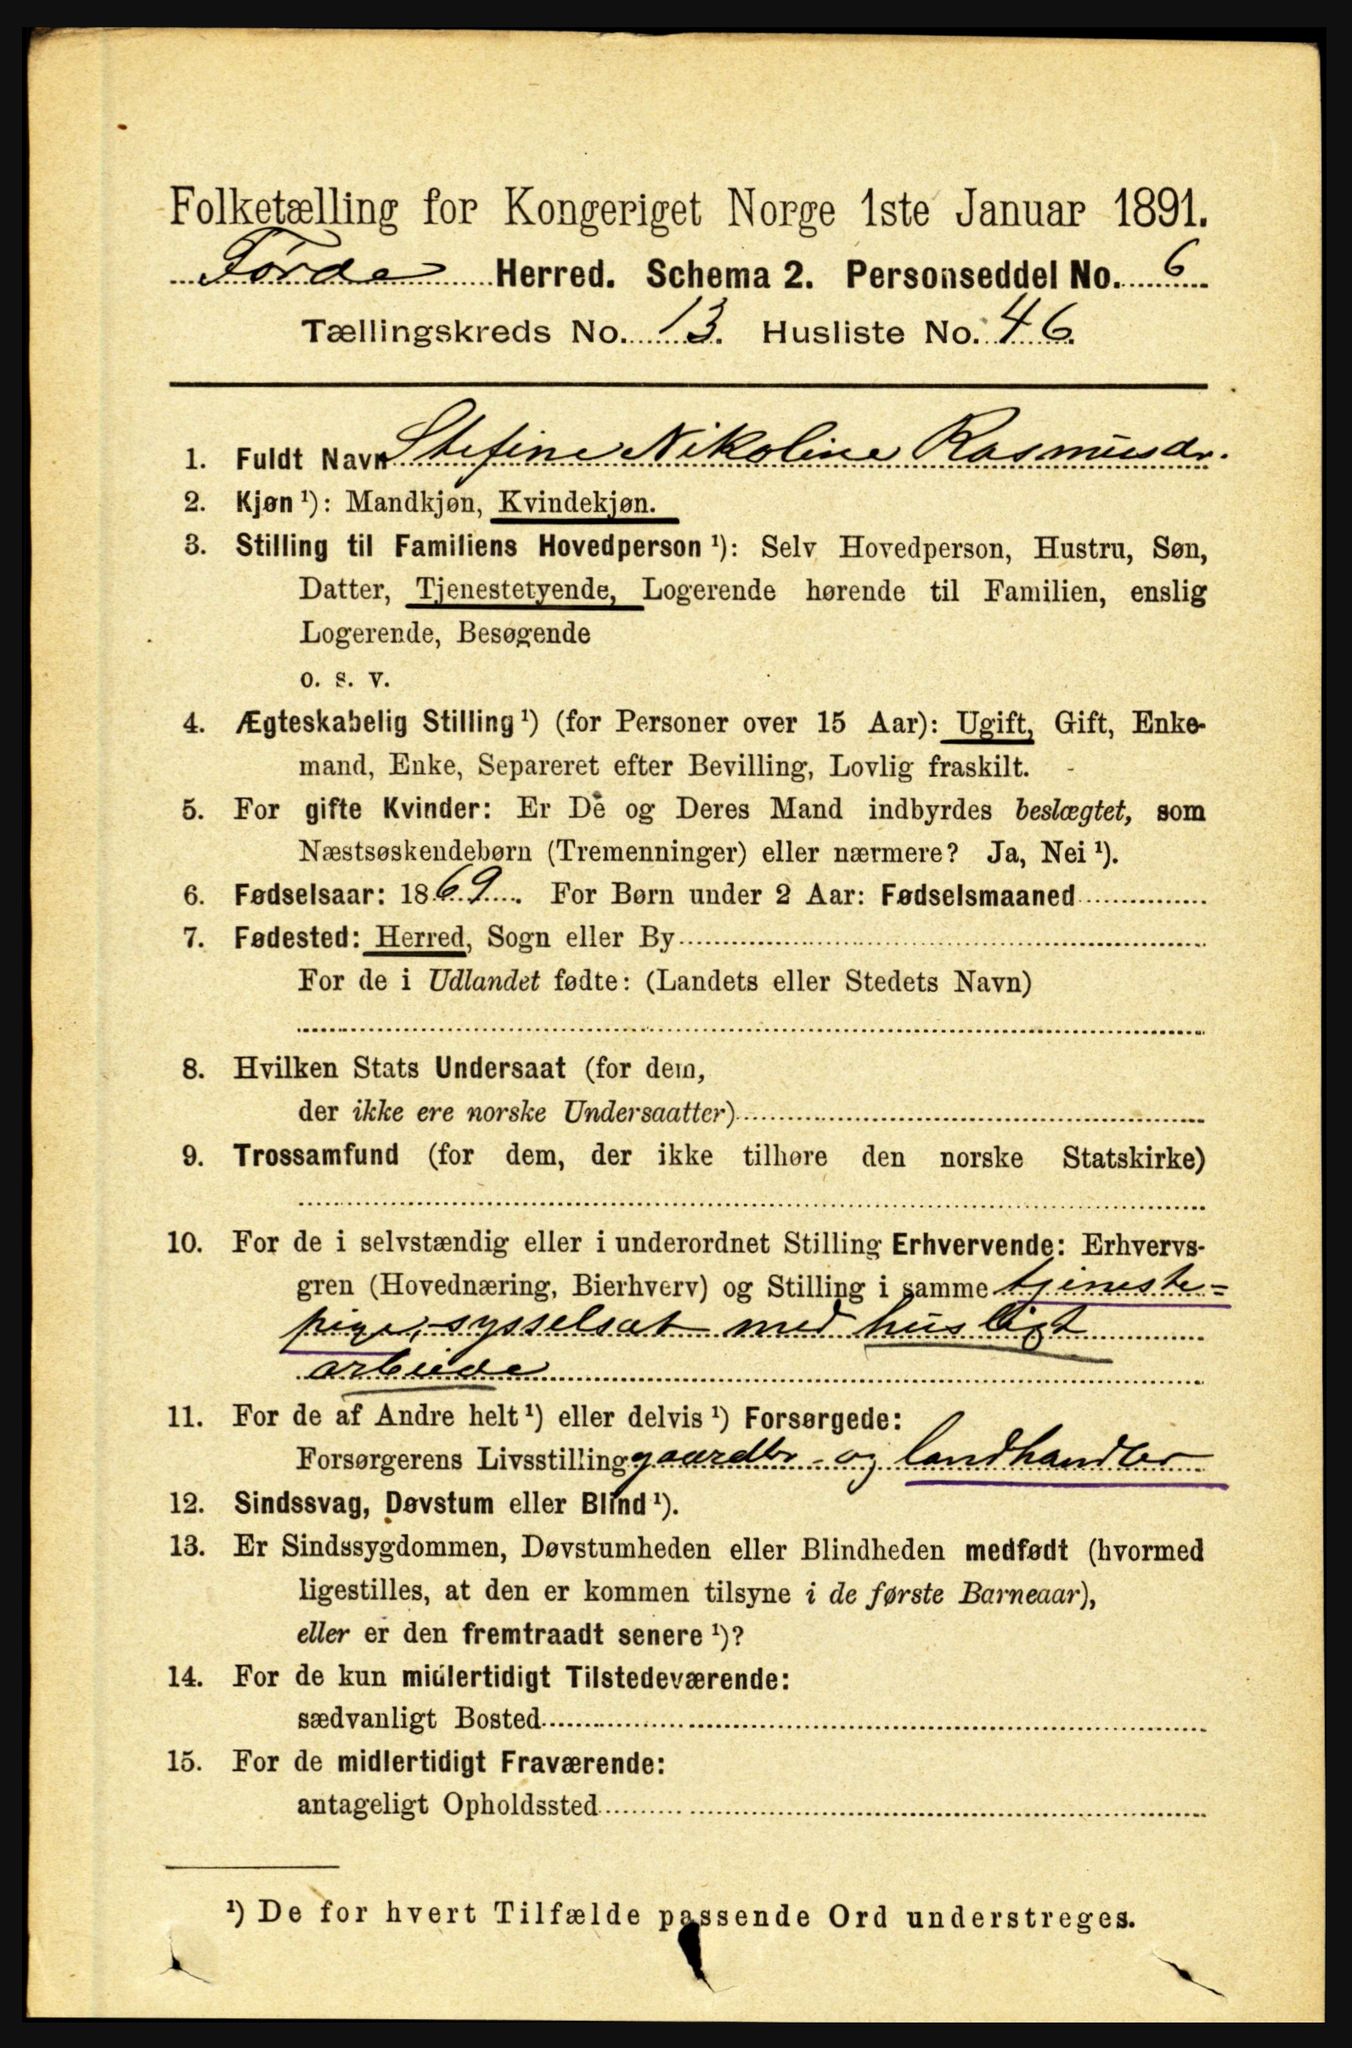 Folketælling for Kongeriget Norge 1ste Januar 1891.
Førde Herred. Schema 2. Personseddel No. 6
Tællingskreds No. 13. Husliste No. 46.
1. Fuldt Navn Stefine Nikoline Rasmusdr.
2. Kjøn ¹): Mandkjøn, Kvindekjøn.
3. Stilling til Familiens Hovedperson ¹): Selv Hovedperson, Hustru, Søn,
Datter, Tjenestetyende, Logerende hørende til Familien, enslig
Logerende, Besøgende
o. s. v.
4. Ægteskabelig Stilling ¹) (for Personer over 15 Aar): Ugift, Gift, Enke-
mand, Enke, Separeret efter Bevilling, Lovlig fraskilt.
5. For gifte Kvinder: Er De og Deres Mand indbyrdes beslægtet, som
Næstsøskendebørn (Tremenninger) eller nærmere? Ja, Nei ¹).
6. Fødselsaar: 1869. For Børn under 2 Aar: Fødselsmaaned
7. Fødested: Herred, Sogn eller By
For de i Udlandet fødte: (Landets eller Stedets Navn)
8. Hvilken Stats Undersaat (for dem,
der ikke ere norske Undersaatter)
9. Trossamfund (for dem, der ikke tilhøre den norske Statskirke)
10. For de i selvstændig eller i underordnet Stilling Erhvervende: Erhvervs-
gren (Hovednæring, Bierhverv) og Stilling i samme tjeneste-
pige, sysselsat med husligt
arbeide
11. For de af Andre helt ¹) eller delvis ¹) Forsørgede:
Forsørgerens Livsstilling gaardbr. og landhandler
12. Sindssvag, Døvstum eller Blind ¹).
13. Er Sindssygdommen, Døvstumheden eller Blindheden medfødt (hvormed
ligestilles, at den er kommen tilsyne i de første Barneaar),
eller er den fremtraadt senere ¹)?
14. For de kun midlertidigt Tilstedeværende:
sædvanligt Bosted
15. For de midlertidigt Fraværende:
antageligt Opholdssted
¹) De for hvert Tilfælde passende Ord understreges.